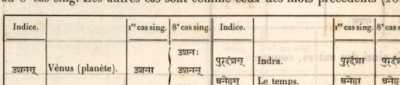 du 8ᵉ cas sing. Les autres cas sont comme ceux des mots précédents
Indice. 1ᵉʳ cas sing. 8ᵉ cas sing. Indice. 1ᵉʳ cas sing. 8ᵉ cas
उशनः
उशनस् Vénus (planète). उशना उशनन् पुरुदंशस् Indra. पुरुदंशा
अनेहस् Le temps. अनेहा